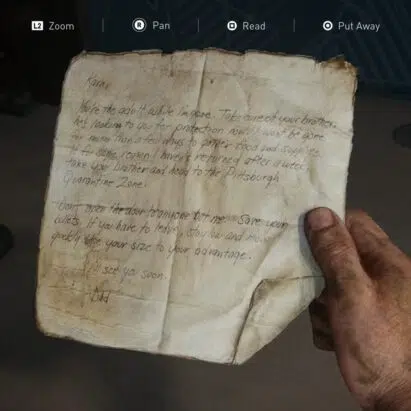 L2 Zoom
R Pan
Read
Put Away
Karen
You're the adult while I'm gone. Take care of your brother.
He's looking to you for protection now. I won't be gone
for more than a few days to gather food and supplies.
If for some reason I haven't returned after a week,
take your brother and head to the Pittsburgh
Quarantine Zone.
Don't open the door to anyone but me. Save your
bullets. If you have to leave, stay low and move
quickly. Use your size to your advantage.
I'll see you soon.
Dad